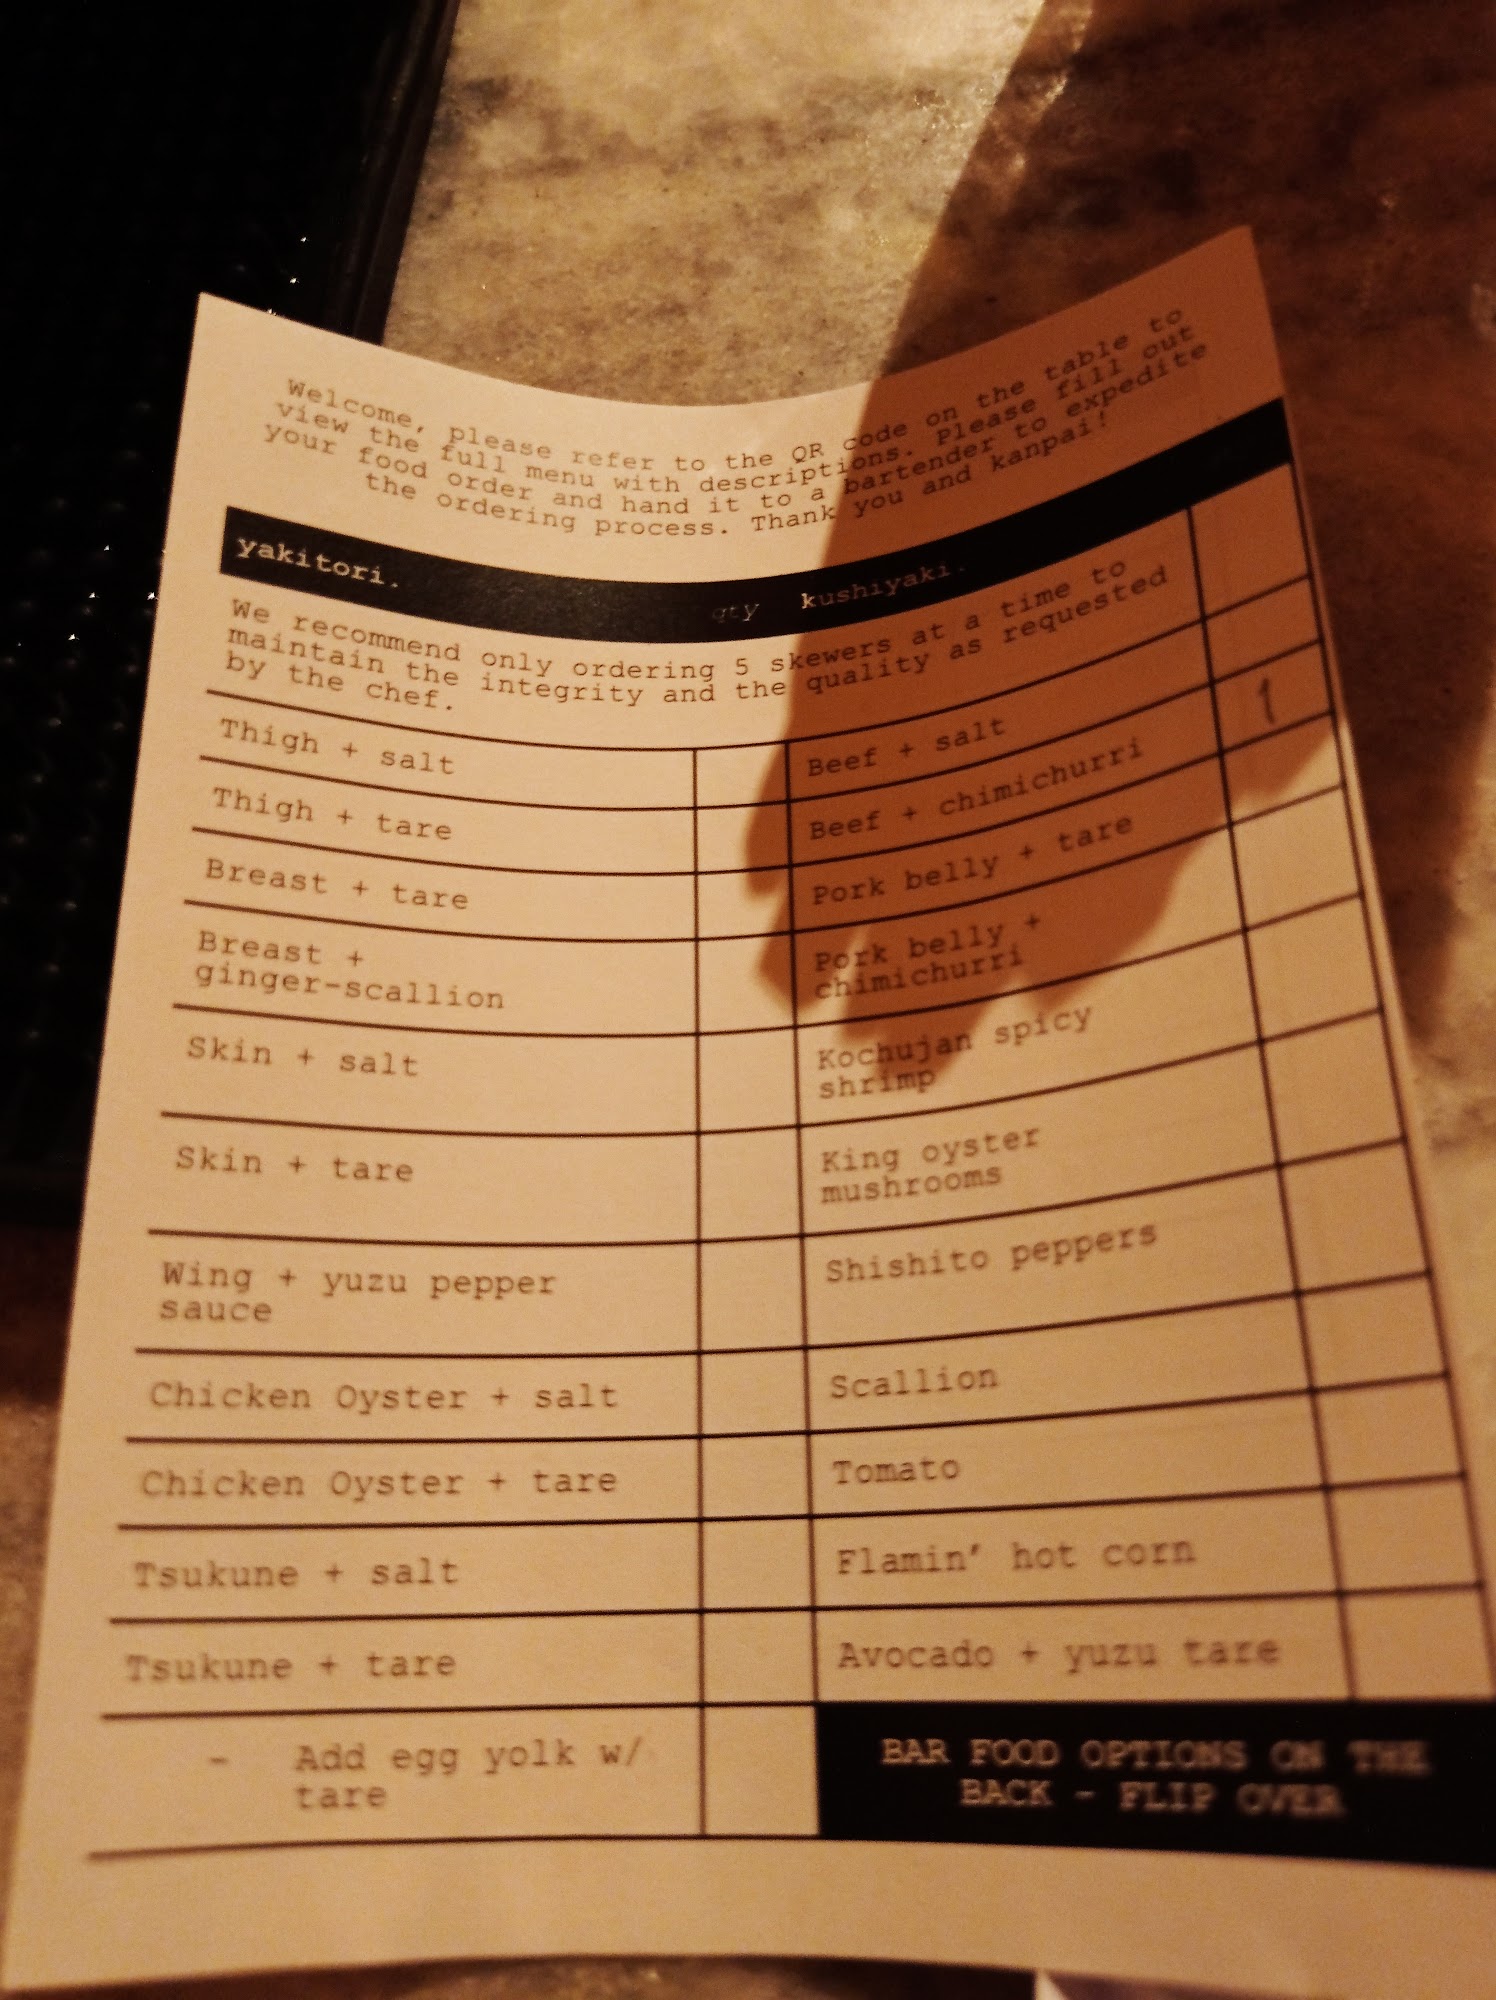 Welcome, please refer to the QR code on the table to
view the full menu with descriptions. Please fill out
your food order and hand it to a bartender to expedite
the ordering process. Thank you and kanpai!
yakitori. qty kushiyaki.
We recommend only ordering 5 skewers at a time to
maintain the integrity and the quality as requested
by the chef.
Thigh + salt
Thigh + tare
Breast + tare
Breast +
ginger-scallion
Skin + salt
Skin + tare
Wing + yuzu pepper
sauce
Chicken Oyster + salt
Chicken Oyster + tare
Tsukune + salt
Tsukune + tare
- Add egg yolk w/
tare
Beef + salt
Beef + chimichurri 1
Pork belly + tare
Pork belly +
chimichurri
Kochujan spicy
shrimp
King oyster
mushrooms
Shishito peppers
Scallion
Tomato
Flamin' hot corn
Avocado + yuzu tare
BAR FOOD OPTIONS ON THE
BACK - FLIP OVER